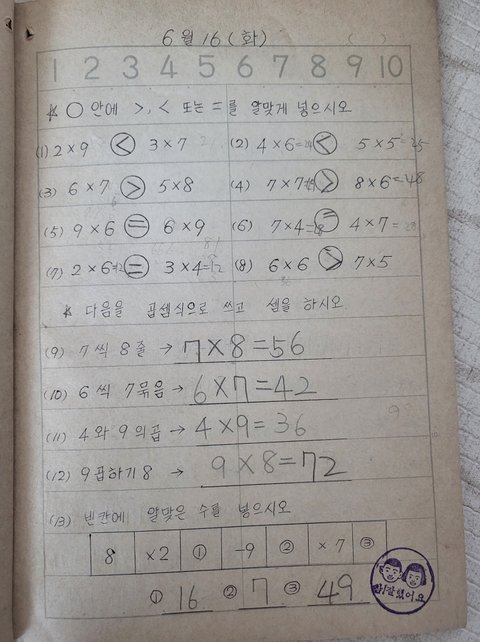 6월 16 (화) ( )
1 2 3 4 5 6 7 8 9 10
☆ ○ 안에 >, < 또는 = 를 알맞게 넣으시오
(1) 2×9 < 3×7 (2) 4×6=24 < 5×5=25
(3) 6×7 > 5×8 (4) 7×7 > 8×6=48
(5) 9×6 = 6×9 (6) 7×4=28 = 4×7=28
(7) 2×6=12 = 3×4=12 (8) 6×6 > 7×5
☆ 다음을 곱셈식으로 쓰고 셈을 하시오
(9) 7씩 8줄 → 7×8=56
(10) 6씩 7묶음 → 6×7=42
(11) 4와 9의곱 → 4×9=36
(12) 9곱하기8 → 9×8=72
(13) 빈칸에 알맞은 수를 넣으시오
8 ×2 ① -9 ② ×7 ③
① 16 ② 7 ③ 49